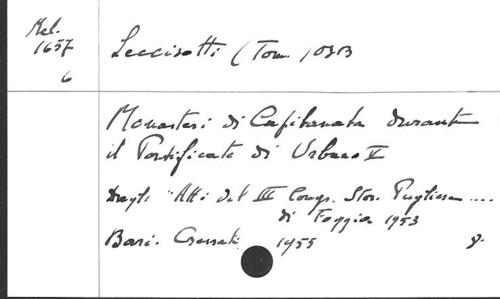 Mel.
1657
6
Leccisotti (Tom.) OSB
Monasteri di Capitanata durante
il Pontificato di Urbano V
Dagli "Atti del III Congr. Stor. Pugliese ....
di Foggia 1953
Bari. Cressati 1955 8.